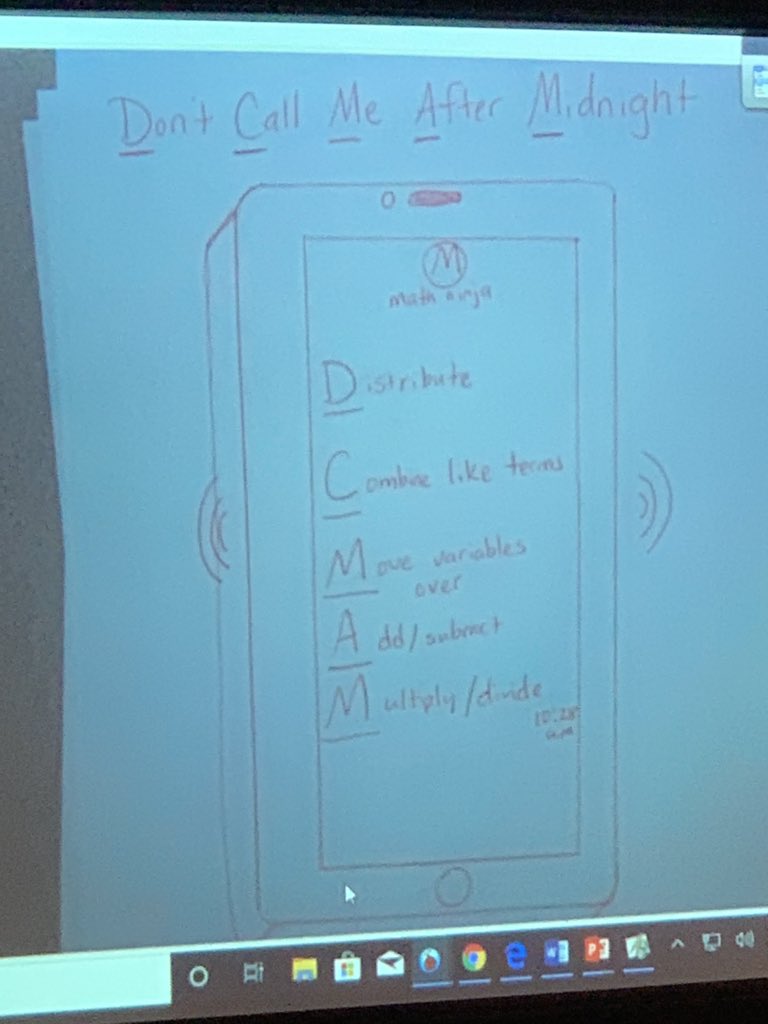 Don't Call Me After Midnight
M
math ninja
Distribute
Combine like terms
Move variables
over
Add/subract
Multiply/divide
10:28